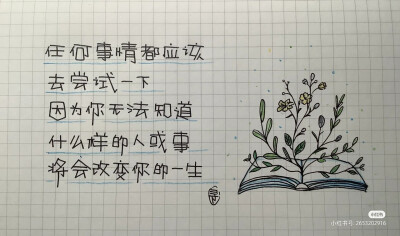 任何事情都应该
去尝试一下
因为你无法知道
什么样的人或事
将会改变你的一生
小红书
小红书号:3653202916